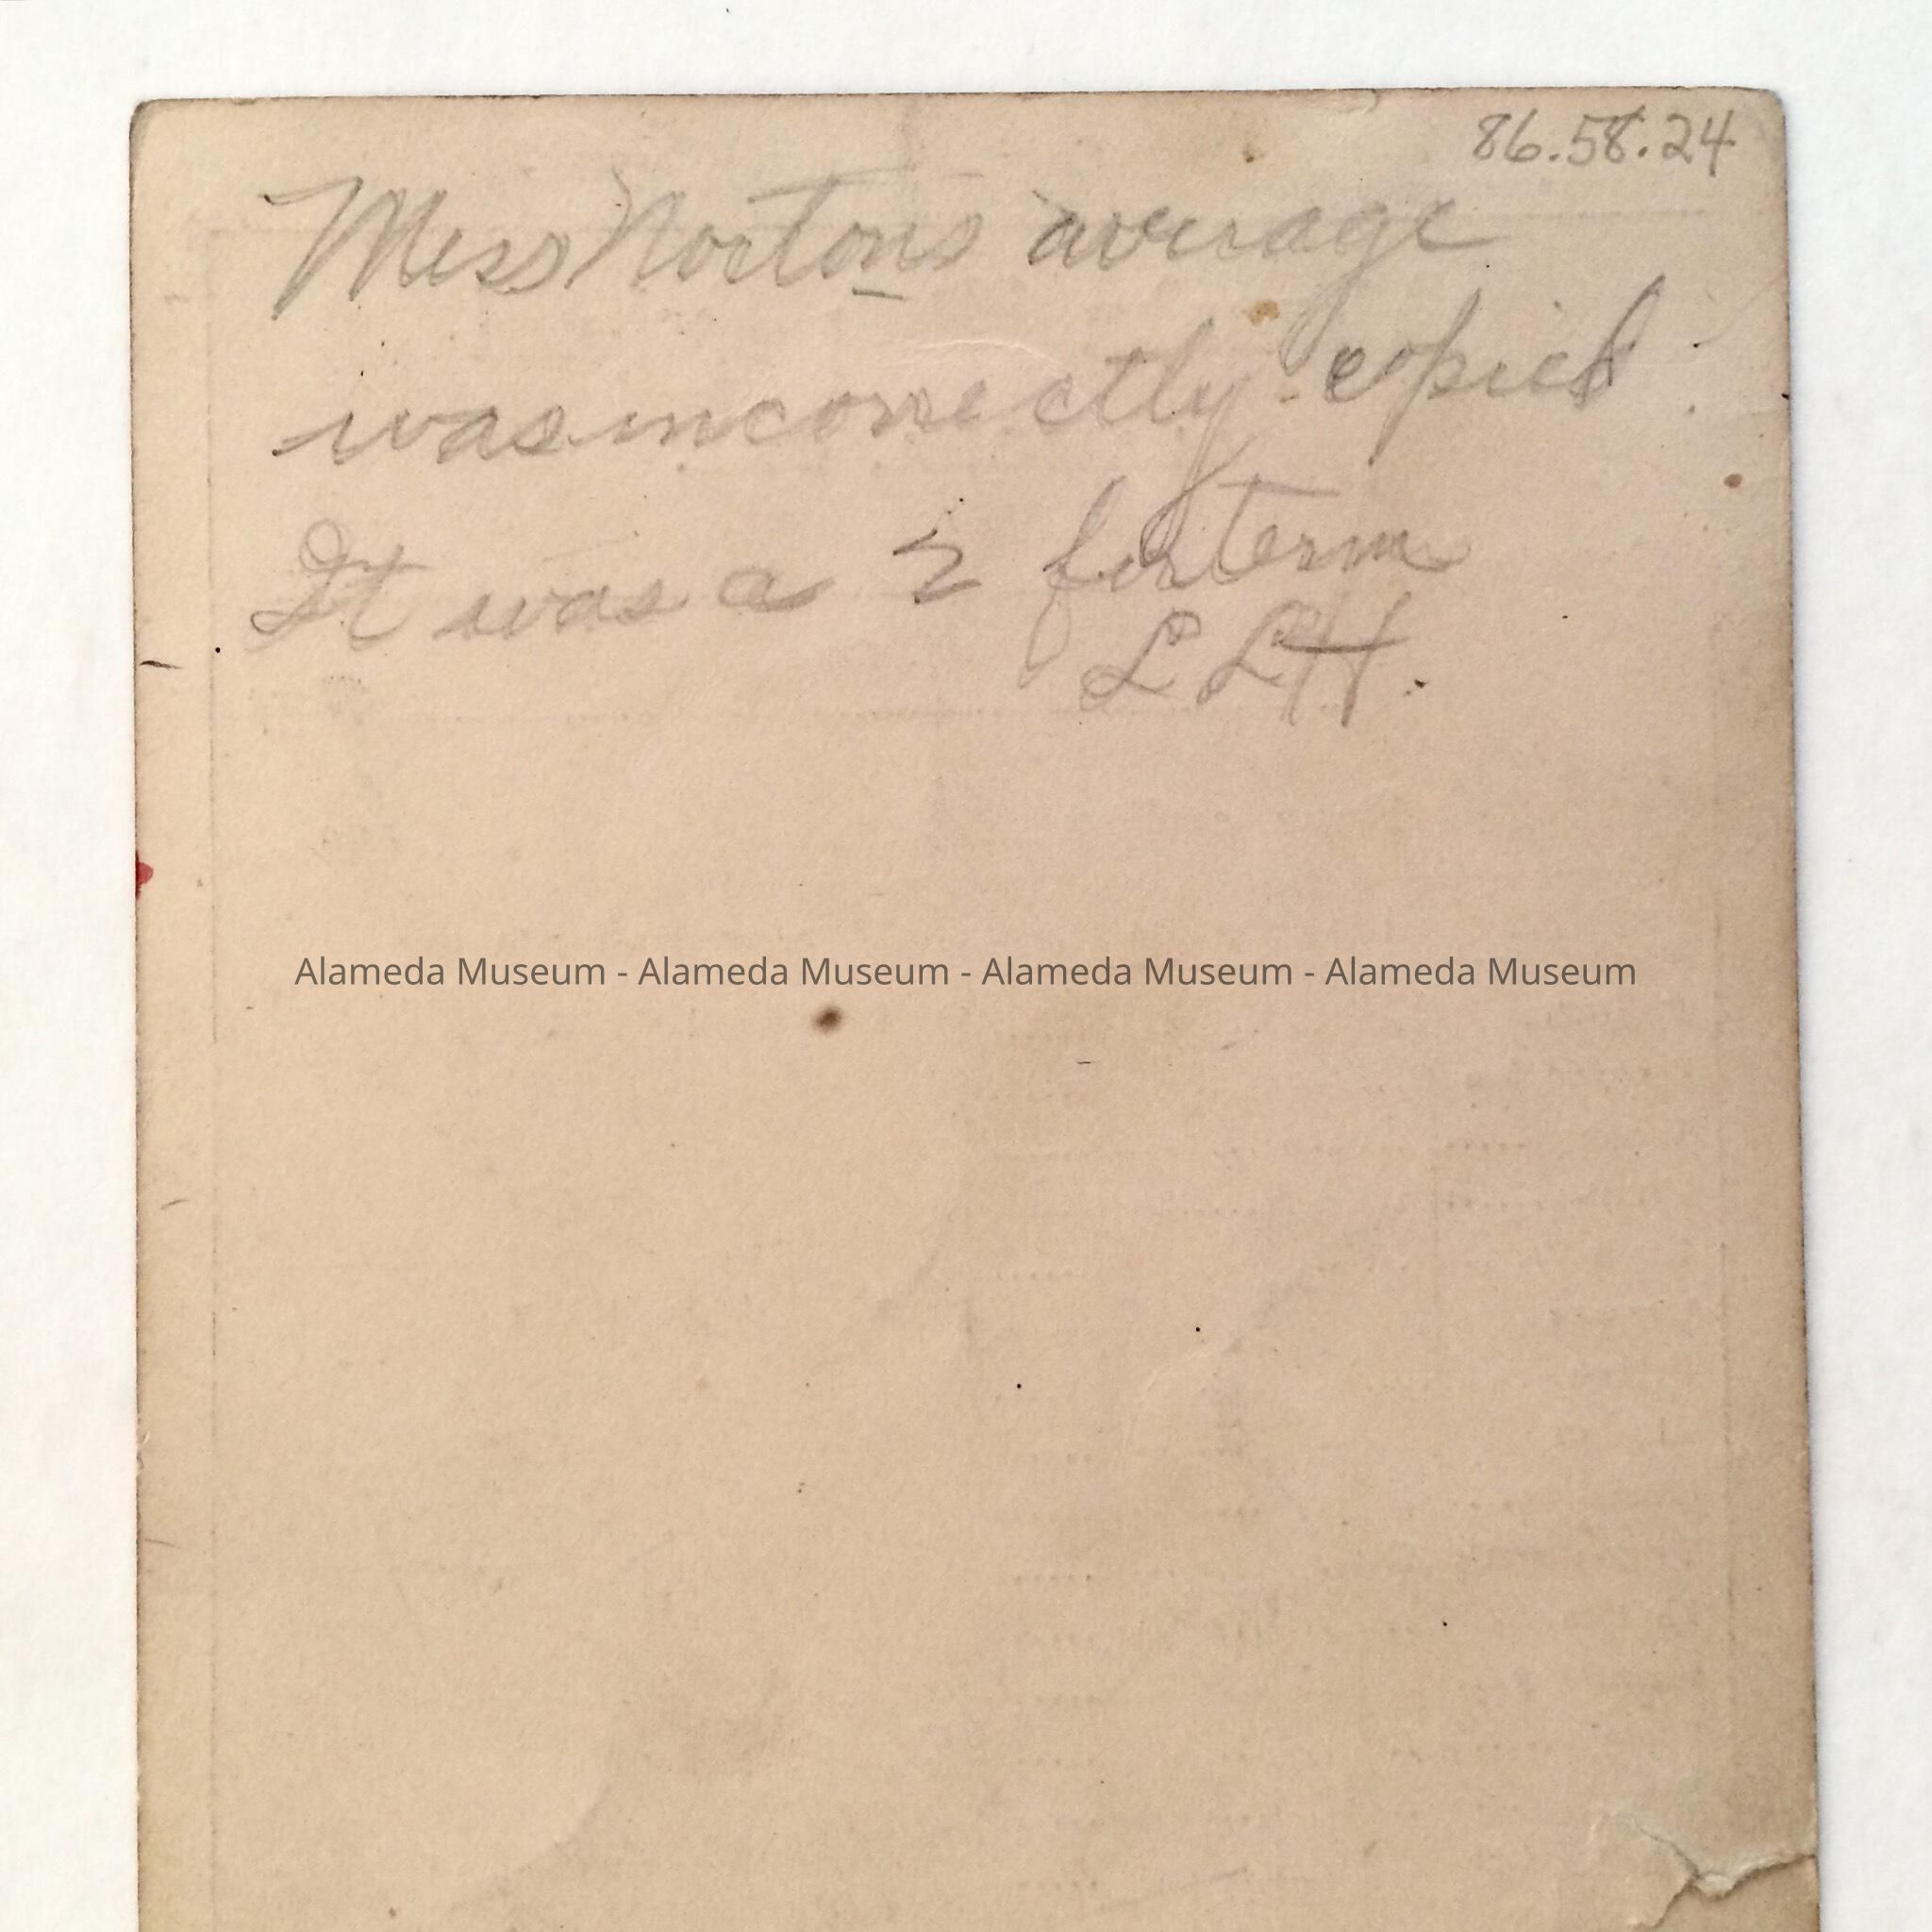 86.58.24
Miss Nortons average
was incorrectly copied.
It was a 2 for term
L L H.
Alameda Museum - Alameda Museum - Alameda Museum - Alameda Museum